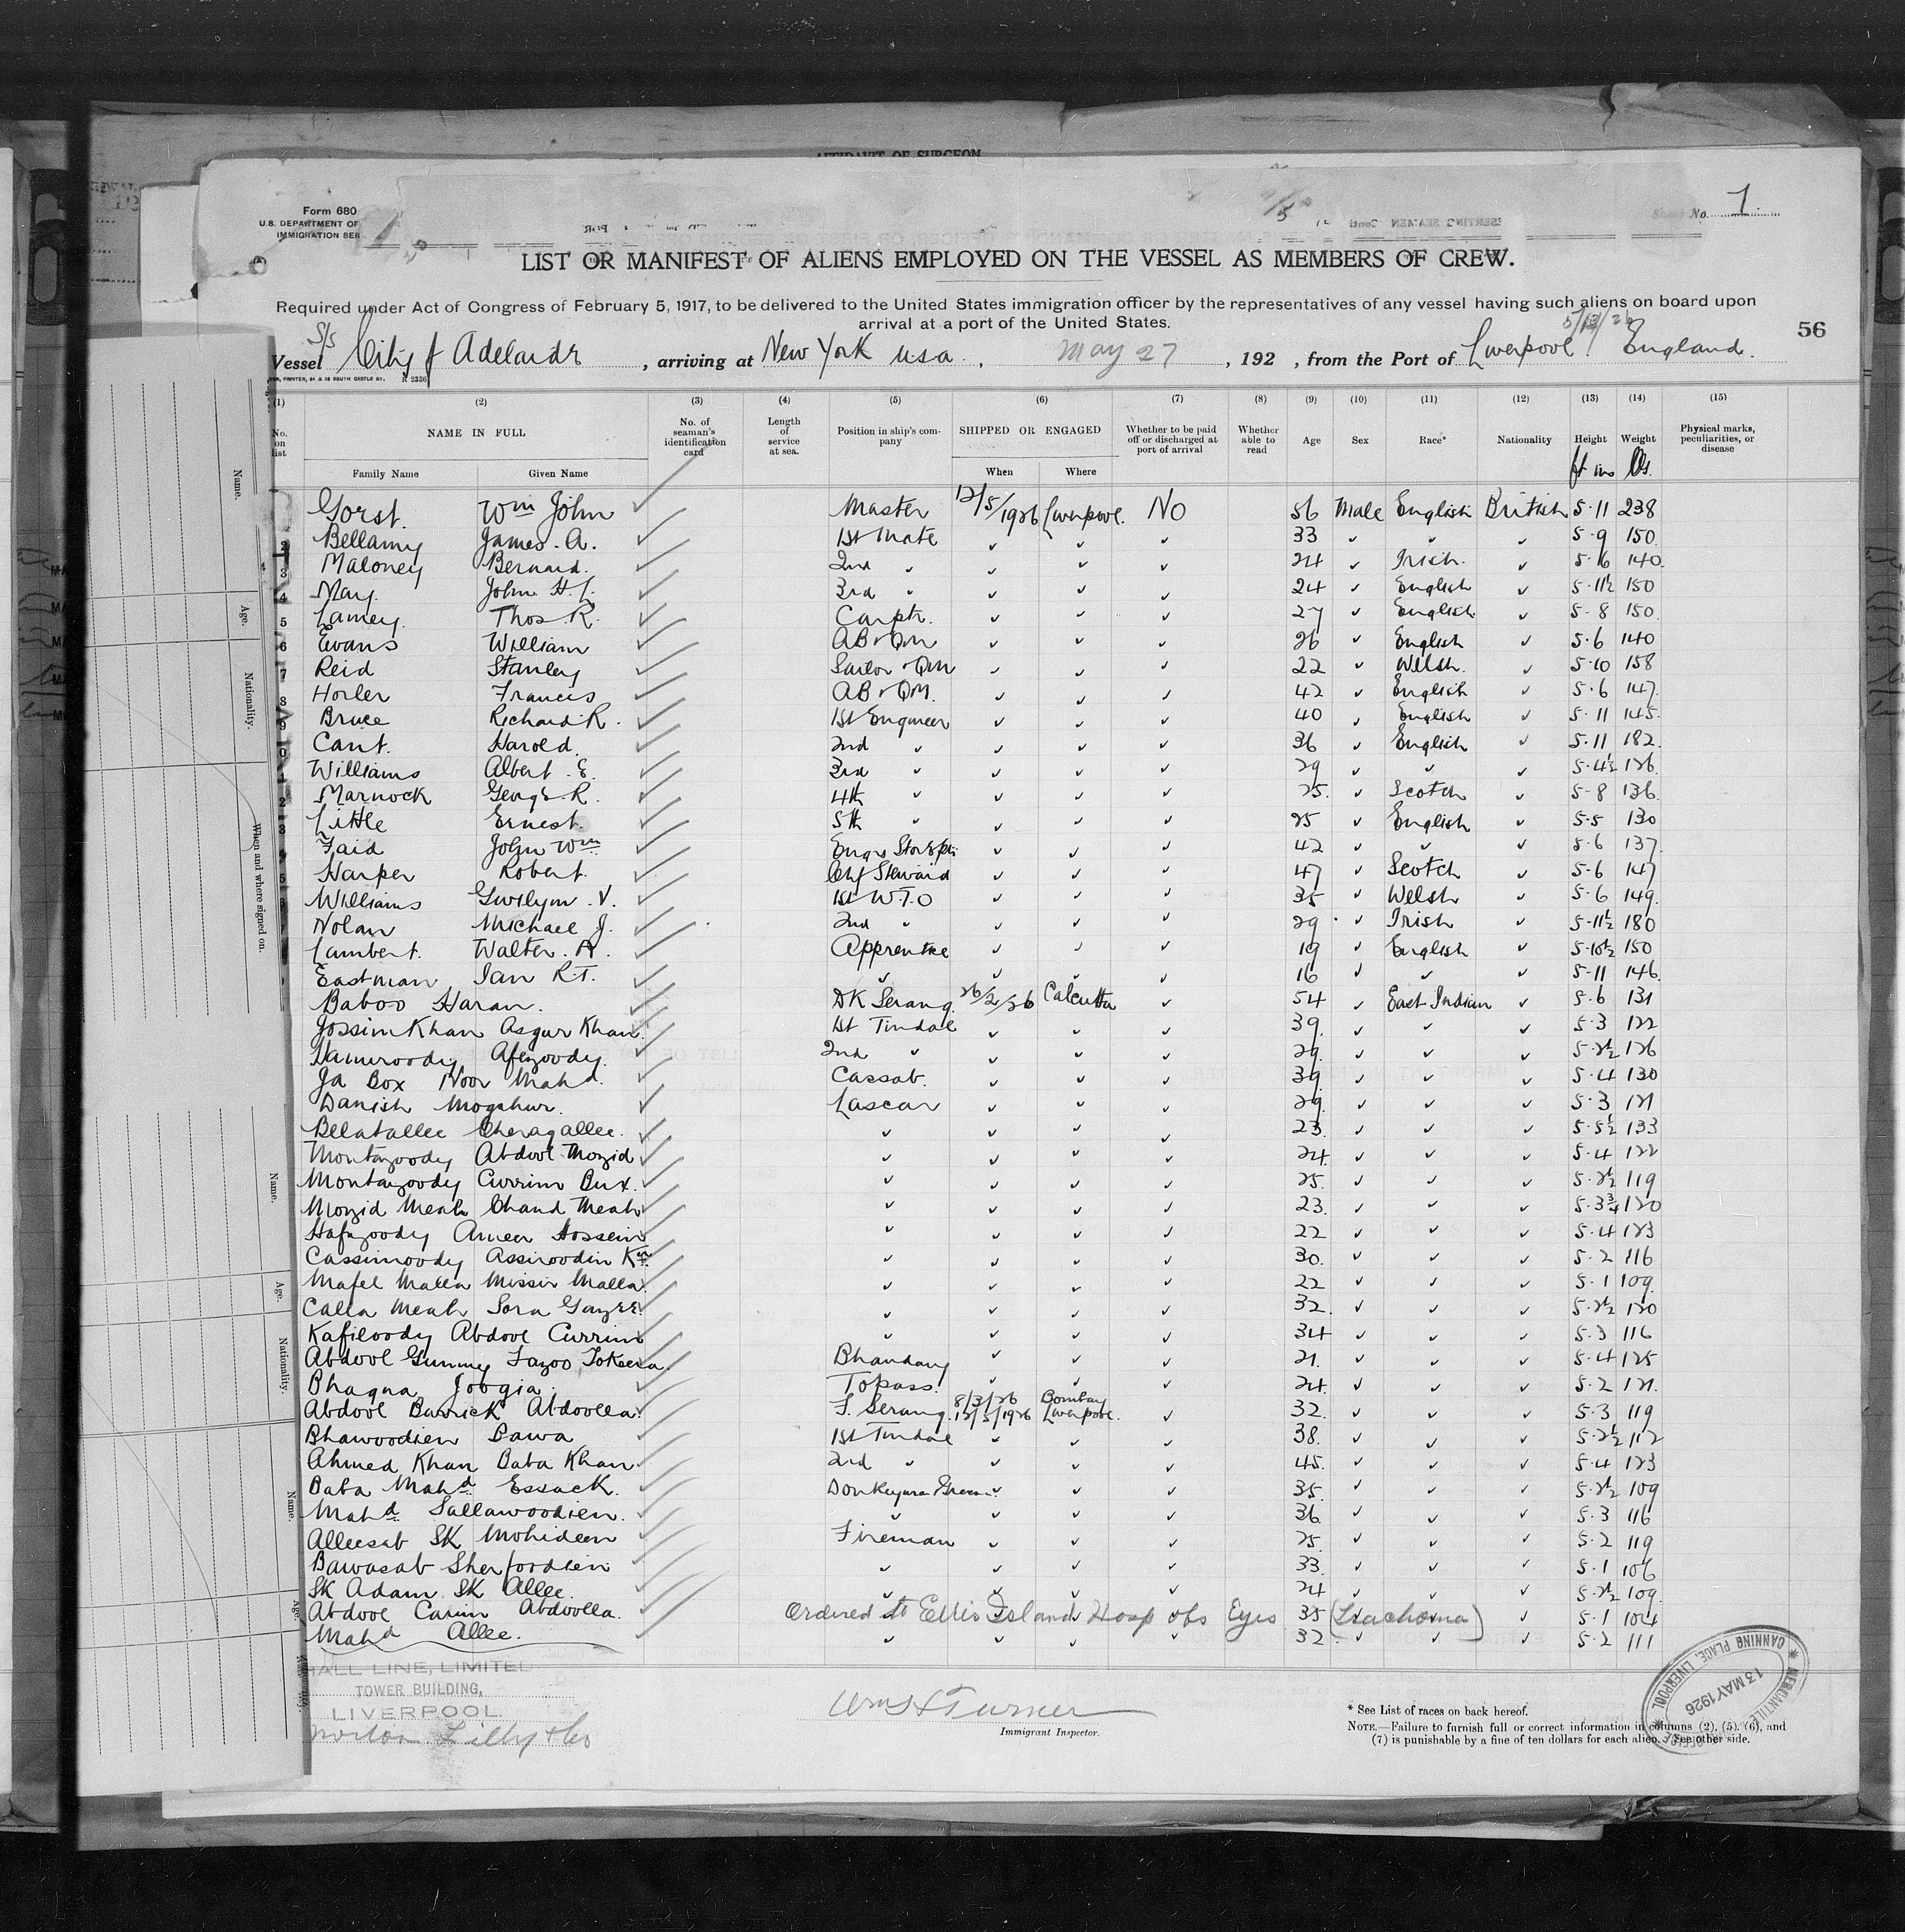 AFFIDAVIT OF SURGEON
Form 680
U.S. DEPARTMENT OF
IMMIGRATION SER
Sheet No. 1
LIST OR MANIFEST OF ALIENS EMPLOYED ON THE VESSEL AS MEMBERS OF CREW.
Required under Act of Congress of February 5, 1917, to be delivered to the United States immigration officer by the representatives of any vessel having such aliens on board upon
arrival at a port of the United States.
56
Vessel S/S City of Adelaide, arriving at New York USA, May 27, 192 , from the Port of Liverpool England.
(1) (2) (3) (4) (5) (6) (7) (8) (9) (10) (11) (12) (13) (14) (15)
No. on list NAME IN FULL No. of seaman's identification card Length of service at sea. Position in ship's company SHIPPED OR ENGAGED Whether to be paid off or discharged at port of arrival Whether able to read Age Sex Race* Nationality Height Weight Physical marks, peculiarities, or disease
Family Name Given Name When Where ft ins lbs.
Gorst. Wm John ✓ Master 12/5/1926 Liverpool. No 56 Male English British 5-11 238
2 Bellamy James. A. ✓ 1st Mate ✓ ✓ ✓ 33 ✓ ✓ ✓ 5-9 150
3 Maloney Bernard. ✓ 2nd " ✓ ✓ ✓ 24 ✓ Irish. ✓ 5-6 140
4 May. John H. L. ✓ 3rd " ✓ ✓ ✓ 24 ✓ English ✓ 5-11½ 150
5 Lamey. Thos R. ✓ Carptr. ✓ ✓ ✓ 27 ✓ English ✓ 5-8 150
6 Evans William ✓ AB & QM ✓ ✓ ✓ 26 ✓ English ✓ 5-6 140
7 Reid Stanley ✓ Sailor & QM ✓ ✓ ✓ 22 ✓ Welsh. ✓ 5-10 158
8 Horler Francis ✓ AB & QM. ✓ ✓ ✓ 42 ✓ English ✓ 5-6 147
9 Bruce Richard R. ✓ 1st Engineer ✓ ✓ ✓ 40 ✓ English ✓ 5-11 145
0 Cant. Harold. ✓ 2nd " ✓ ✓ ✓ 36 ✓ English ✓ 5-11 182
Williams Albert. E. ✓ 3rd " ✓ ✓ ✓ 29 ✓ ✓ ✓ 5-4½ 126
2 Marnock George R. ✓ 4th " ✓ ✓ ✓ 25. ✓ Scotch ✓ 5-8 136
3 Little Ernest. ✓ 5th " ✓ ✓ ✓ 25 ✓ English ✓ 5-5 130
Faid John Wm ✓ Engrs Storekpr ✓ ✓ ✓ 42 ✓ ✓ ✓ 5-6 137
5 Harper Robert. ✓ Chf Steward ✓ ✓ ✓ 47 ✓ Scotch ✓ 5-6 147
Williams Gwilym. V. ✓ 1st W.T.O ✓ ✓ ✓ 35 ✓ Welsh ✓ 5-6 149
Nolan Michael J. ✓ 2nd " ✓ ✓ ✓ 29 ✓ Irish ✓ 5-11½ 180
Lambert. Walter. A. ✓ Apprentice ✓ ✓ ✓ 19 ✓ English ✓ 5-10½ 150
Eastman Ian R.T. ✓ ✓ ✓ ✓ ✓ 16 ✓ ✓ ✓ 5-11 146
Baboo Haran. ✓ DK Serang 26/2/26 Calcutta ✓ 54 ✓ East Indian ✓ 5-6 131
Jossim Khan Asgur Khan. ✓ 1st Tindal ✓ ✓ ✓ 39. ✓ ✓ ✓ 5-3 122
Afezoody. ✓ 2nd " ✓ ✓ ✓ 29. ✓ ✓ ✓ 5-2½ 126
Ja Box Noor Mahd. ✓ Cassab. ✓ ✓ ✓ 39. ✓ ✓ ✓ 5-4 130
Danish Mogahur. ✓ Lascar ✓ ✓ ✓ 29. ✓ ✓ ✓ 5-3 121
Bellatallee Cheragallee. ✓ ✓ ✓ ✓ ✓ 23. ✓ ✓ ✓ 5-5½ 133
Montazoody Abdool Mozid ✓ ✓ ✓ ✓ ✓ 24. ✓ ✓ ✓ 5-4 122
Montazoody Currim Bux. ✓ ✓ ✓ ✓ ✓ 25. ✓ ✓ ✓ 5-2½ 119
Mozid Meah Chand Meah ✓ ✓ ✓ ✓ ✓ 23. ✓ ✓ ✓ 5-3¾ 120
Hafizoody Ameer Hossein ✓ ✓ ✓ ✓ 22 ✓ ✓ ✓ 5-4 123
Cassimoody Assiroodin Kn. ✓ ✓ ✓ ✓ 30. ✓ ✓ ✓ 5-2 116
Mafel Malla Missir Malla. ✓ ✓ ✓ ✓ 22 ✓ ✓ ✓ 5-1 109
Calla Meah Sora Gazee ✓ ✓ ✓ ✓ ✓ 32. ✓ ✓ ✓ 5-2½ 120
Kafiloody Abdool Currim ✓ ✓ ✓ ✓ 34 ✓ ✓ ✓ 5-3 116
Abdool Gunney Fazoo Tokeera. ✓ Bhandary ✓ ✓ ✓ 21. ✓ ✓ ✓ 5-4 125
Bhagna Joogia. ✓ Topass. ✓ ✓ ✓ 24. ✓ ✓ ✓ 5-2 121
Abdool Barrick Abdoolla. ✓ F. Serang. 8/3/26 Bombay 12/5/1926 Liverpool. ✓ 32. ✓ ✓ ✓ 5-3 119
Bhawoodien Bawa ✓ 1st Tindal ✓ ✓ ✓ 38. ✓ ✓ ✓ 5-2½ 112
Ahmed Khan Baba Khan ✓ 2nd " ✓ ✓ ✓ 45. ✓ ✓ ✓ 5-4 123
Baba Mahd Essack. ✓ ✓ ✓ ✓ 35. ✓ ✓ ✓ 5-2½ 109
Mahd Sallawoodien. ✓ ✓ ✓ ✓ ✓ 36 ✓ ✓ ✓ 5-3 116
Alleesab SK Mohideen ✓ Fireman ✓ ✓ ✓ 25. ✓ ✓ ✓ 5-2 119
Bawasab Sherfoodien ✓ ✓ ✓ ✓ ✓ 33. ✓ ✓ ✓ 5-1 106
SK Adam SK Allee. ✓ ✓ ✓ ✓ ✓ 24 ✓ ✓ ✓ 5-2½ 109
Abdool Carim Abdoolla. ✓ Ordered to Ellis Island Hosp obs Eyes 35 (Trachoma) ✓ 5-1 104
Mahd Allee. ✓ ✓ ✓ ✓ ✓ 32. ✓ ✓ ✓ 5-2 111
HALL LINE, LIMITED
TOWER BUILDING,
LIVERPOOL.
Norton Lilly & Co
Wm S Turner
Immigrant Inspector.
* See List of races on back hereof.
NOTE.—Failure to furnish full or correct information in columns (2), (5), (6), and
(7) is punishable by a fine of ten dollars for each alien. See other side.
MERCANTILE OFFICE
CANNING PLACE, LIVERPOOL
13 MAY 1926
Name.
Age.
Nationality.
When and where signed on.
Name.
Age.
Nationality.
Name.
Age.